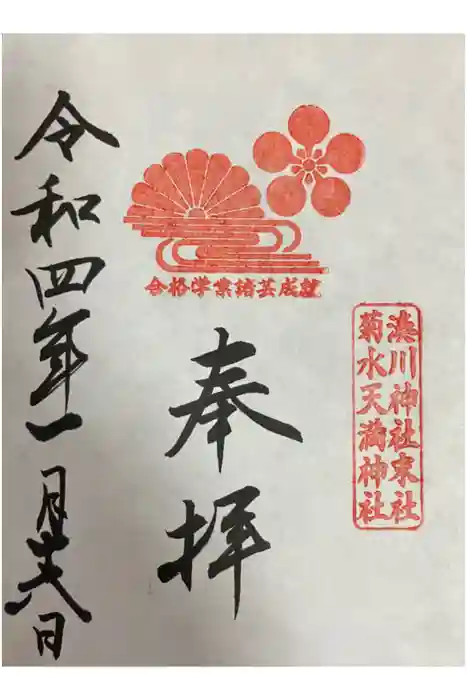 合格学業諸芸成就
湊川神社末社
菊水天満神社
奉拝
令和四年一月 日